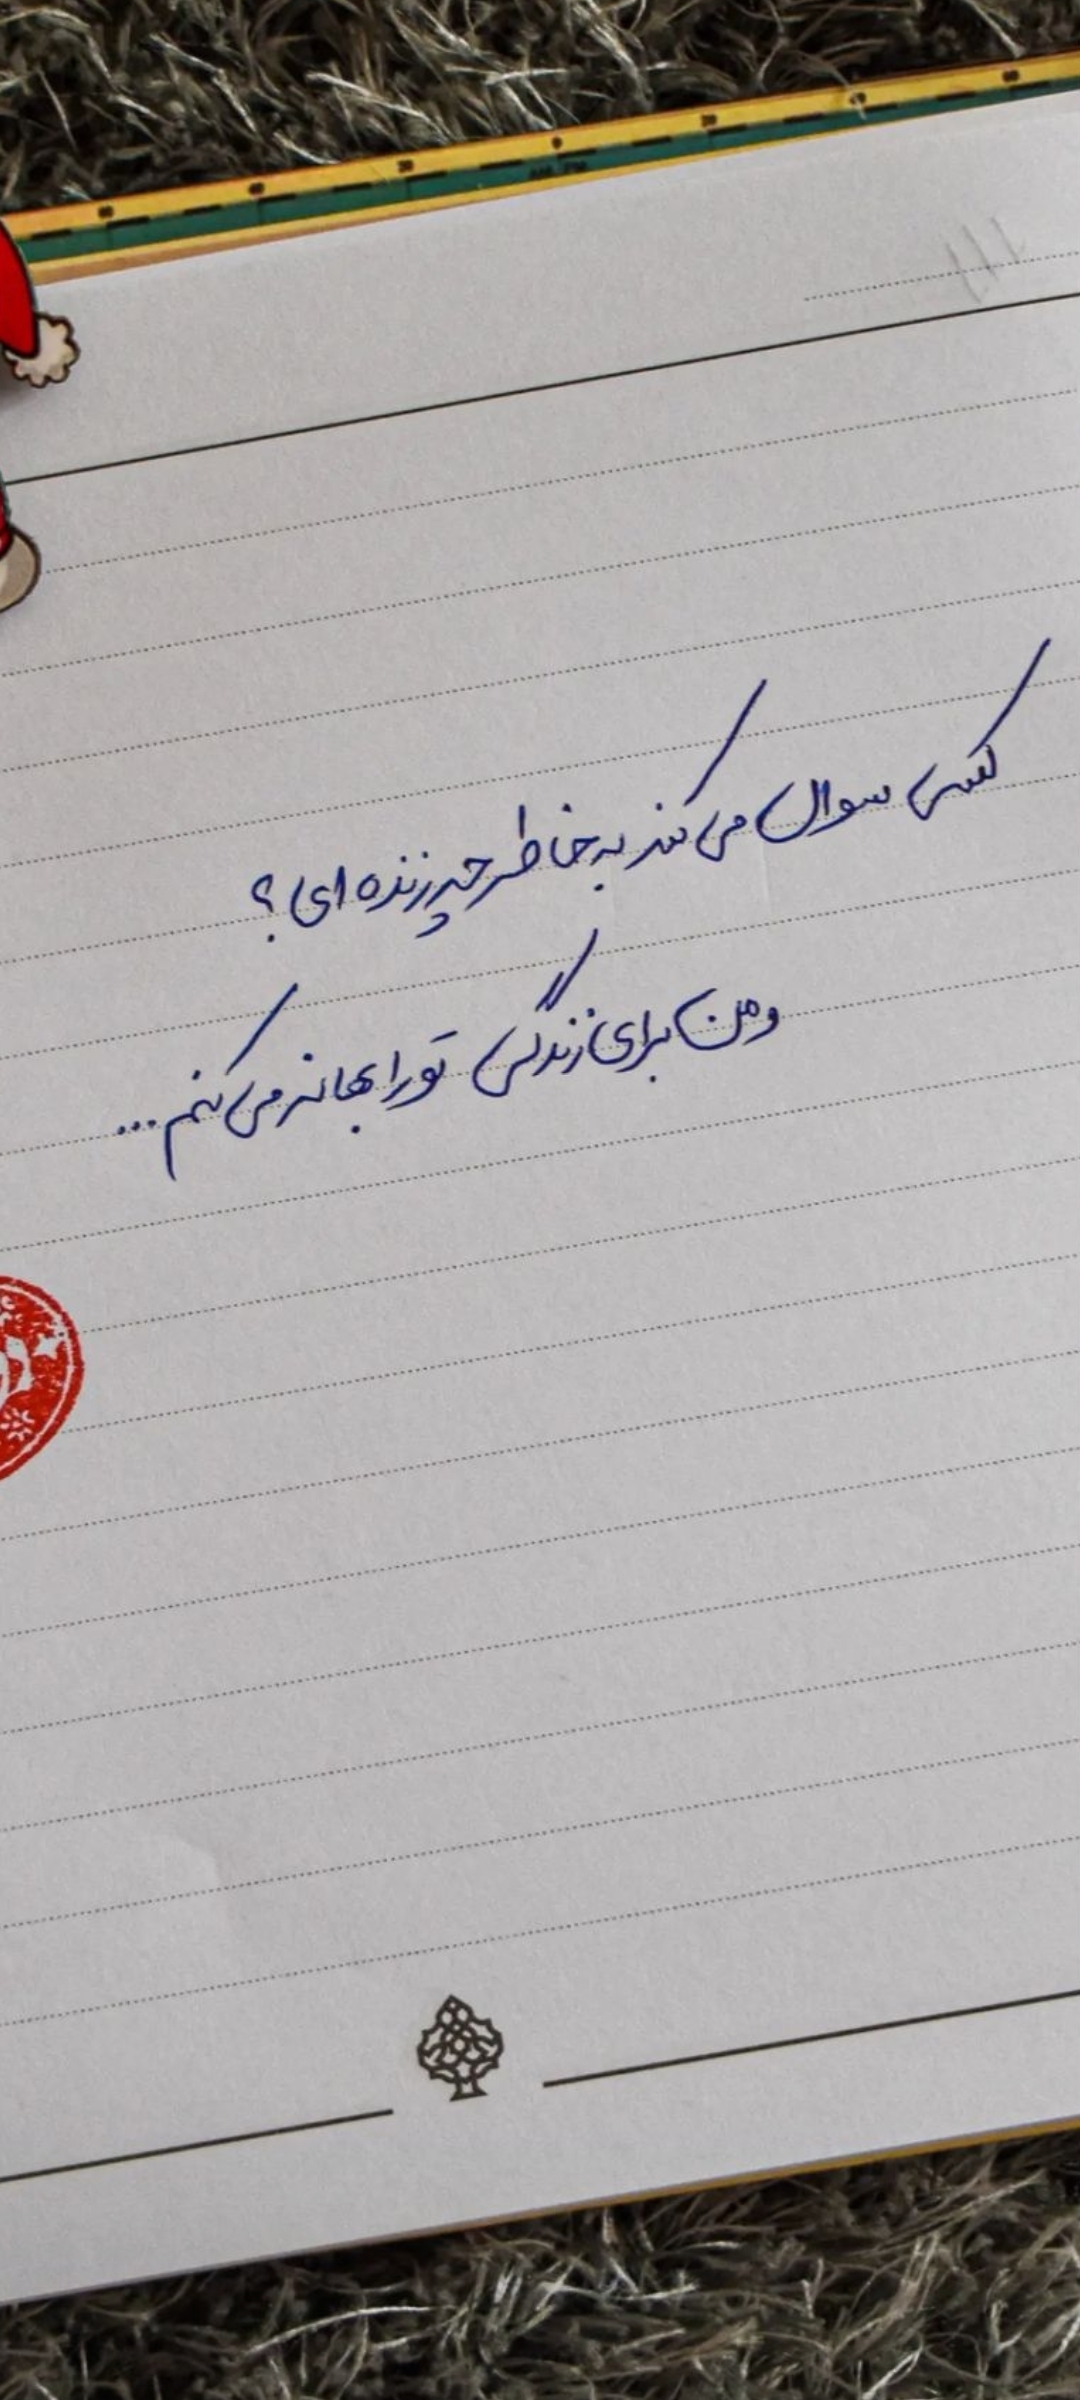 کسی سوال می کند به خاطر چه زنده ای؟
و من برای زندگی تو را بهانه می کنم...